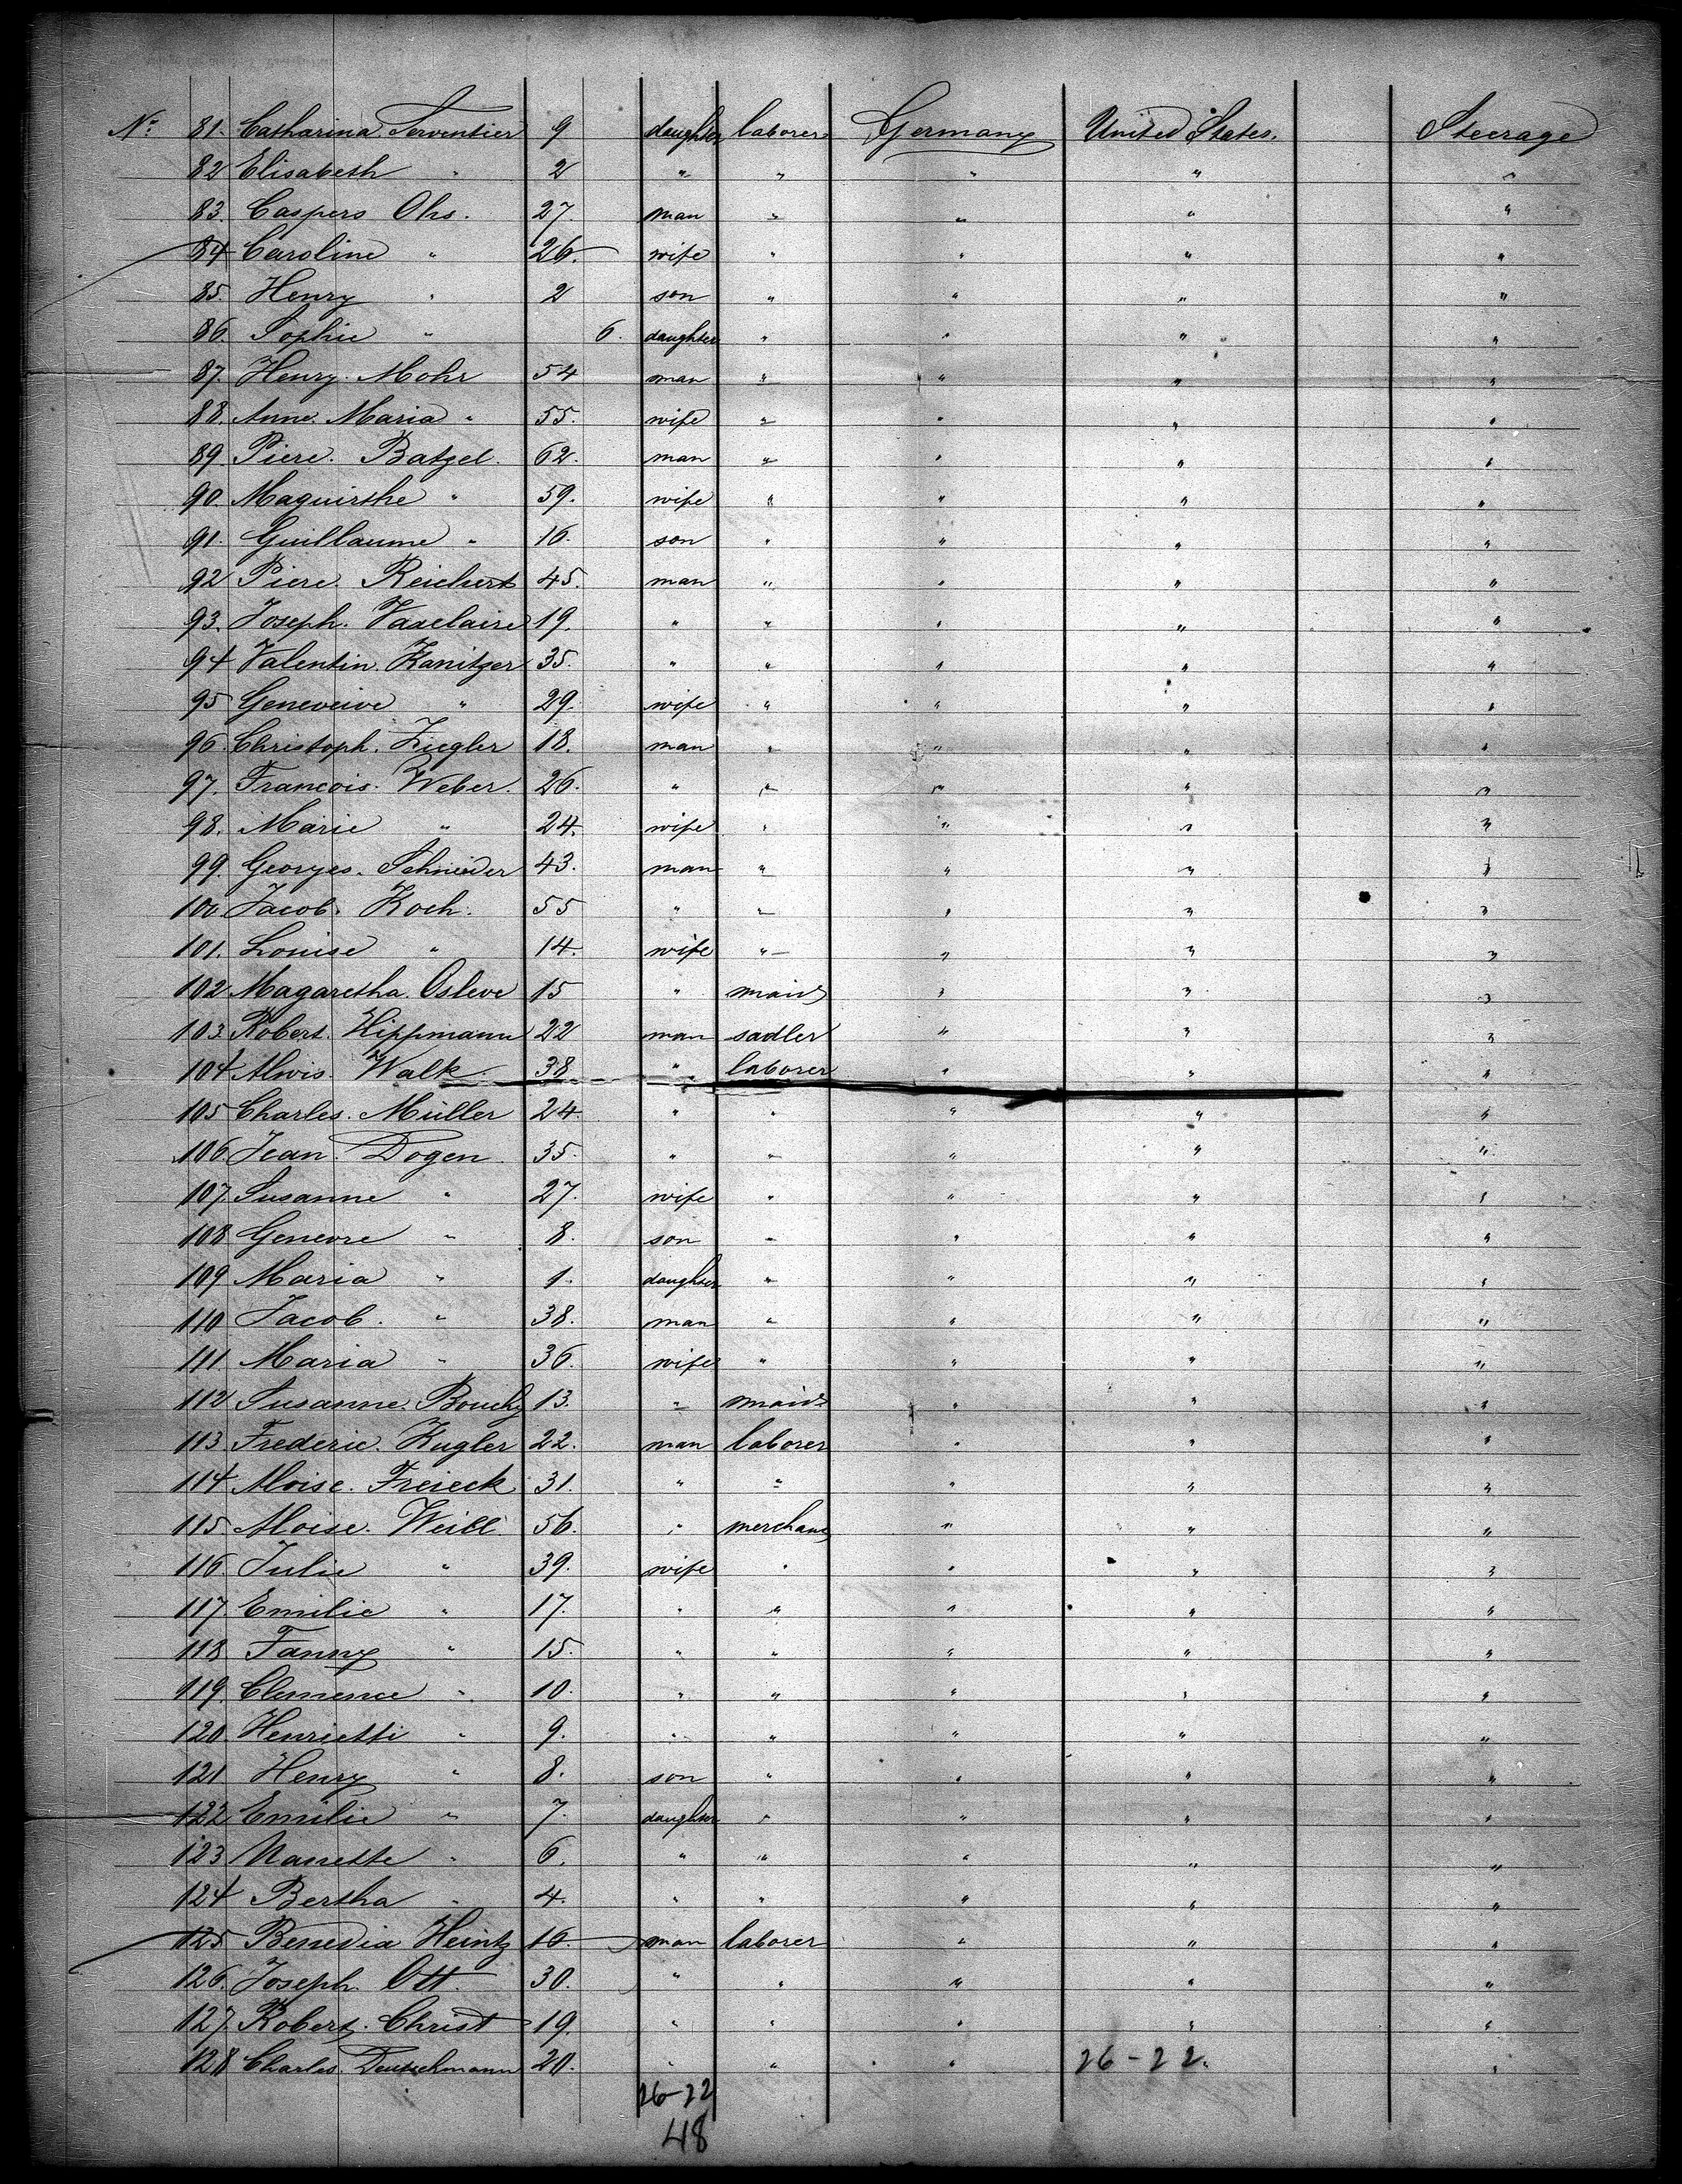 No 81. Catharina Serventier 9 daughter laborer Germany United States. Steerage
82 Elisabeth " 2 " " " " "
83. Caspers Ohs. 27. man " " " "
84 Caroline " 26. wife " " " "
85. Henry " 2 son " " " "
86. Sophie " 6. daughter " " " "
87. Henry. Mohr 54 man " " " "
88. Anne. Maria " 55. wife " " " "
89. Piere. Batzel. 62. man " " " "
90. Maguirthe " 59. wife " " " "
91. Guillaume " 16. son " " " "
92 Piere. Reichert 45. man " " " "
93. Joseph. Vaxelaire 19. " " " " "
94 Valentin. Kanitzer 35. " " " " "
95 Geneveive " 29. wife " " " "
96. Christoph. Ziegler 18. man " " " "
97. Francois. Weber. 26. " " " " "
98. Marie " 24. wife " " " "
99. Georges. Schnieder 43. man " " " "
100. Jacob. Koch. 55 " " " " "
101. Louise " 14. wife " " " "
102 Magaretha. Osleve 15 " maid " " "
103. Robert. Hippmann 22 man sadler " " "
104 Alwis. Walk. 38 " laborer " " "
105 Charles. Müller 24. " " " " "
106. Jean. Dogen. 35. " " " " "
107. Susanne " 27. wife " " " "
108 Genevre " 8. son " " " "
109 Maria " 1. daughter " " " "
110 Jacob. " 38. man " " " "
111 Maria " 36. wife " " " "
112 Susanne. Bouchy 13. " maid " " "
113. Frederic. Kugler 22. man laborer " " "
114 Aloise. Freieck 31. " " " " "
115 Aloise. Weill 56. " merchant " " "
116. Julie " 39. wife " " " "
117. Emilie " 17. " " " " "
118. Fanny " 15. " " " " "
119. Clemence " 10. " " " " "
120. Henrietti " 9. " " " " "
121 Henry " 8. son " " " "
122 Emilie " 7. daughter " " " "
123 Nanette " 6. " " " " "
124 Bertha " 4. " " " " "
125 Benedia Heintz 16. man laborer " " "
126. Joseph. Ott. 30. " " " " "
127. Robert. Christ 19. " " " " "
128 Charles. Deutschmann 20. " " " 26-22. "
26-22
48